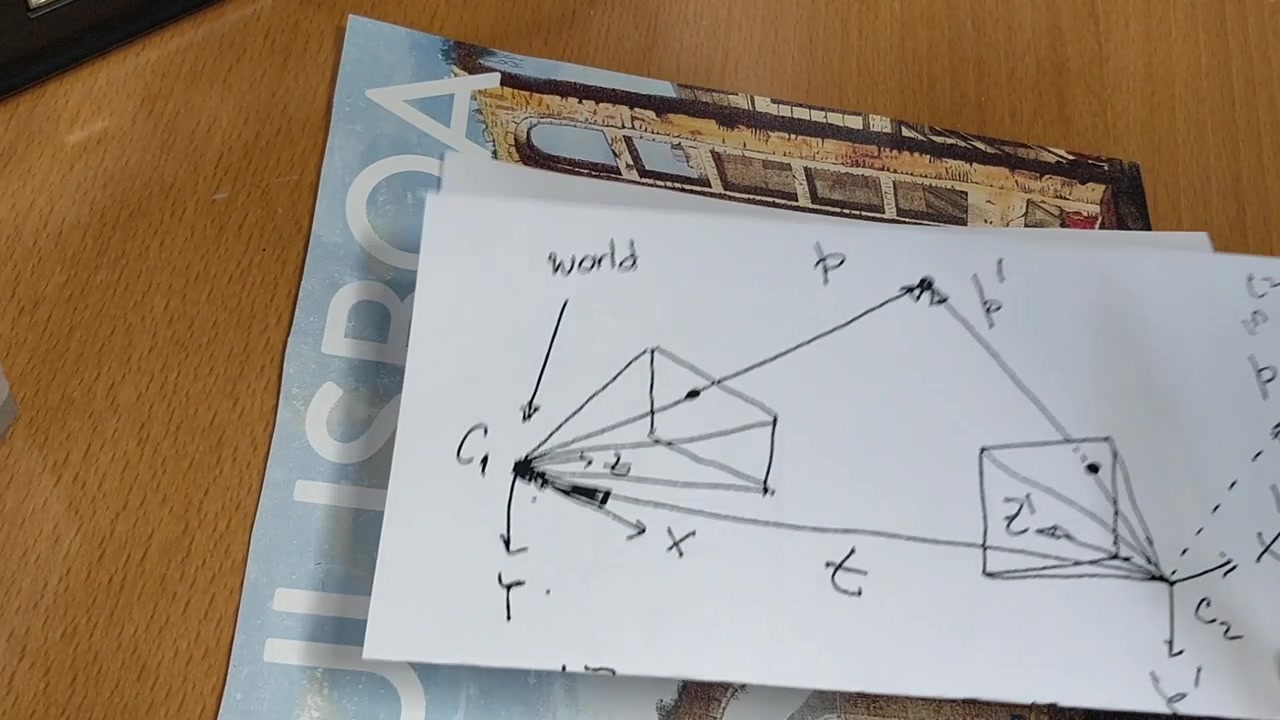 LISBOA
world
p
p'
C₁
z
X
Y
t
z'
C₂
Y'
p
X